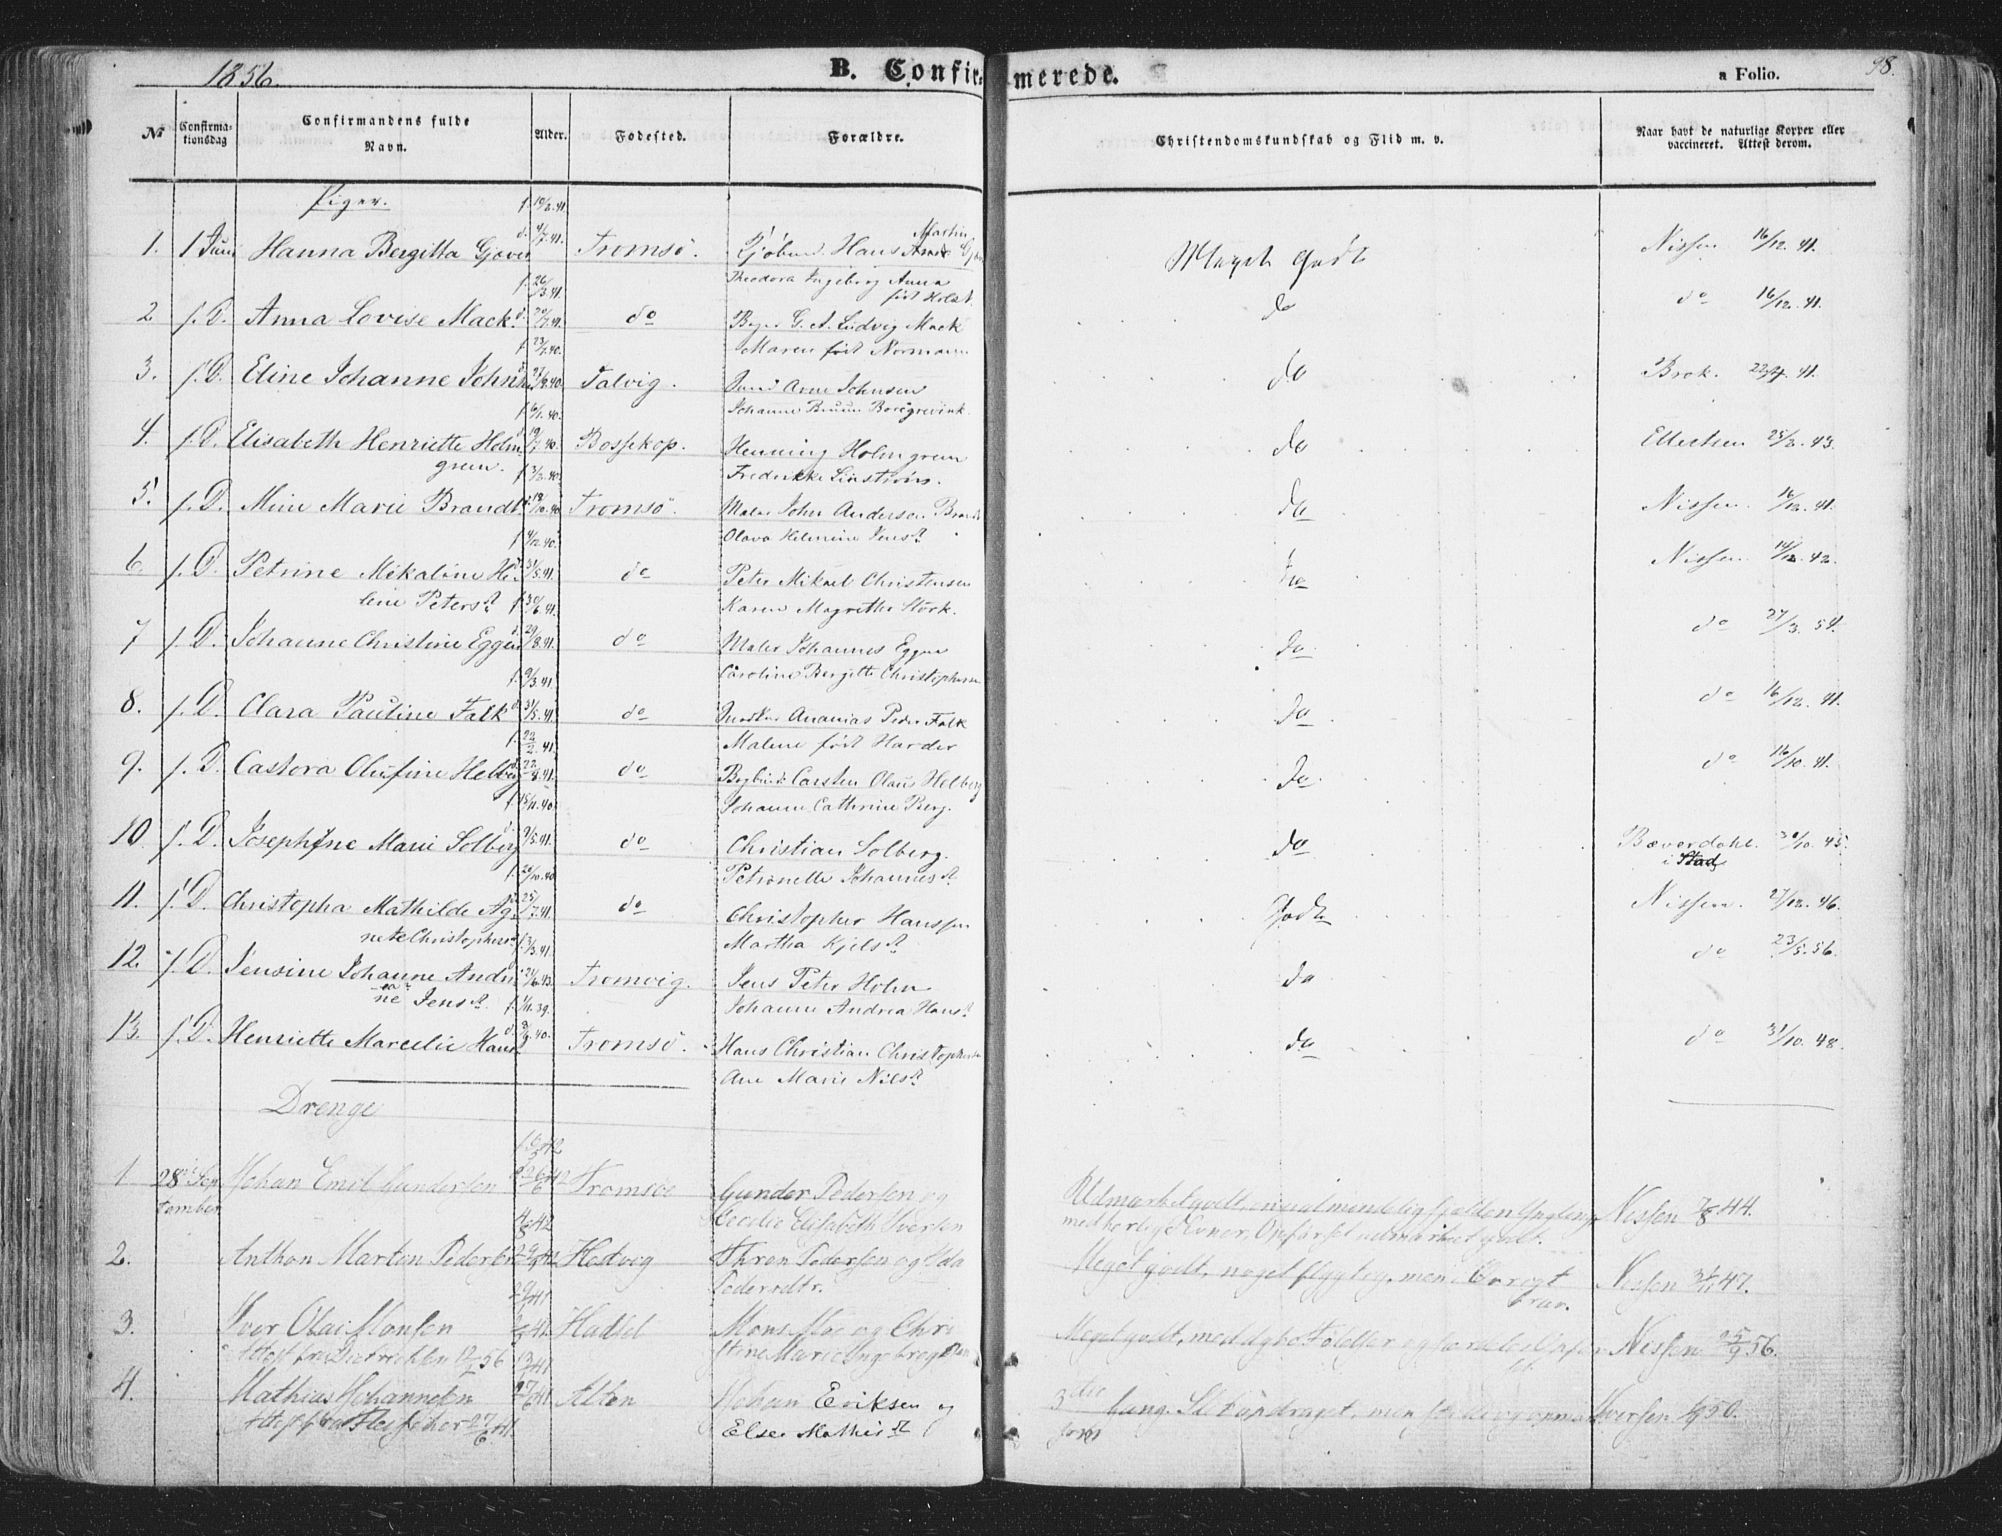 1856.
B. Confirmerede.
a Folio.
98.
No
Confirmationsdag
Confirmandens fulde Navn.
Alder.
Fødested.
Forældre.
Christendomskundskab og Flid m. v.
Naar havt de naturlige Kopper eller vaccineret. Attest derom.
Piger.
1. 1 Juni Hanna Bergitta Gjæver f. 10/2.41. d. 4/7.41. Tromsö. Hans Martin
Theodora Ingeborg Anna født Holst. Meget Godt Nissen 16/12.41.
2 s. D. Anna Lovise Mack f. 26/3.41. d. 20/7.41. do G. A. Ludvig Mack
Maren født Normann do do 16/12.41.
3. s. D. Eline Johanne Johnsen f. 23/7.40. d. 27/8.40. Talvig. Arne Johnsen
Johanne Bruun Boregrevink. do Brok. 41.
4. s. D. Elisabeth Henriette Holmgren. f. 6/1.40. d. 19/7.40. Bossekop. Henning Holmgren
Fredrikke Linstrøm. do Ellertsen 25/2.43.
5. s. D. Marie Brandt f. 3/2.40. d. 18/10.40 Tromsö. Maler John Anderson Brandt
Olava Helmine Jensdt. do Nissen. 16/12.41.
6 s. D. Petrine Mikaline Helene Petersdt. f. 4/12.40. d. 31/5.41. do Peter Mikael Christensen
Karen Magrethe Stork. do Nissen 14/12.42.
7 s. D. Johanne Christine Eggen f. 30/6.41. d. 29/8.41. do Maler Johannes Eggen
Caroline Bergitte Christophersen do do 27/3.54.
8. s. D. Clara Pauline Falk f. 9/3.41. d. 31/5.41 do Ananias Peder Falk
Malene født Harder do do 16/12.41.
9. s. D. Castora Olufine Helberg f. 22/2.41. d. 22/8.41. do Bogbind. Carsten Olaus Helberg
Johanne Cathrine Berg. do. do 16/10.41.
10 s. D. Josephine Marie Solberg f. 15/11.40. d. 9/5.41. do Christian Solberg.
Petronelle Johannesdt. do Bæverdahl. 30/10.45.
11. s. D. Christopha Mathilde Agnete Christophersdt. f. 20/10.40 d. 25/7.41. do Christopher Hanssen
Martha Kjelsdt. Godt Nissen. 27/12.46.
12. s. D. Jensine Johanne Andreane Jensdt. f. 3/3.41. d. 21/6.43. Tromvig. Jens Peter Holm
Johanne Andrea Hansdt. do do 23/5.56.
13. s. D. Henriette Marcelie Hansdt. f. 1/11.39. d. 9/9.40. Tromsö. Hans Christian Christophersen
Ane Marie Nilsdt. do do 31/10.48.
Drenge
1 28de September Johan Emil Gundersen d. 26/6 42 Tromsøe Gunder Pedersen og
Cecilie Elisabeth Iversen Udmærket godt, en ualmindelig sjelden Yngling
med herlige Evner, Opførsel udmærket godt. Nissen 7/8 44.
2. Anthon Marton Pedersen Hestvig Thron Pedersen og Ida
Pedersdtr. Meget godt, noget flygtig, men
brav. Nissen 47.
3. Iver Olai Monsen Hadsel Mons Moe og Christine Marie Ingebrog
Attest fra Dietrichsen 12/5 56 Meget godt, med dybe Følelser og Nissen 25/9 56.
4. Mathias Johannesen Alten Johan Eriksen og
Attest fra 27/6 41. Else Mathisdt 3die Gang. Slet opdraget, men Iversen 50.